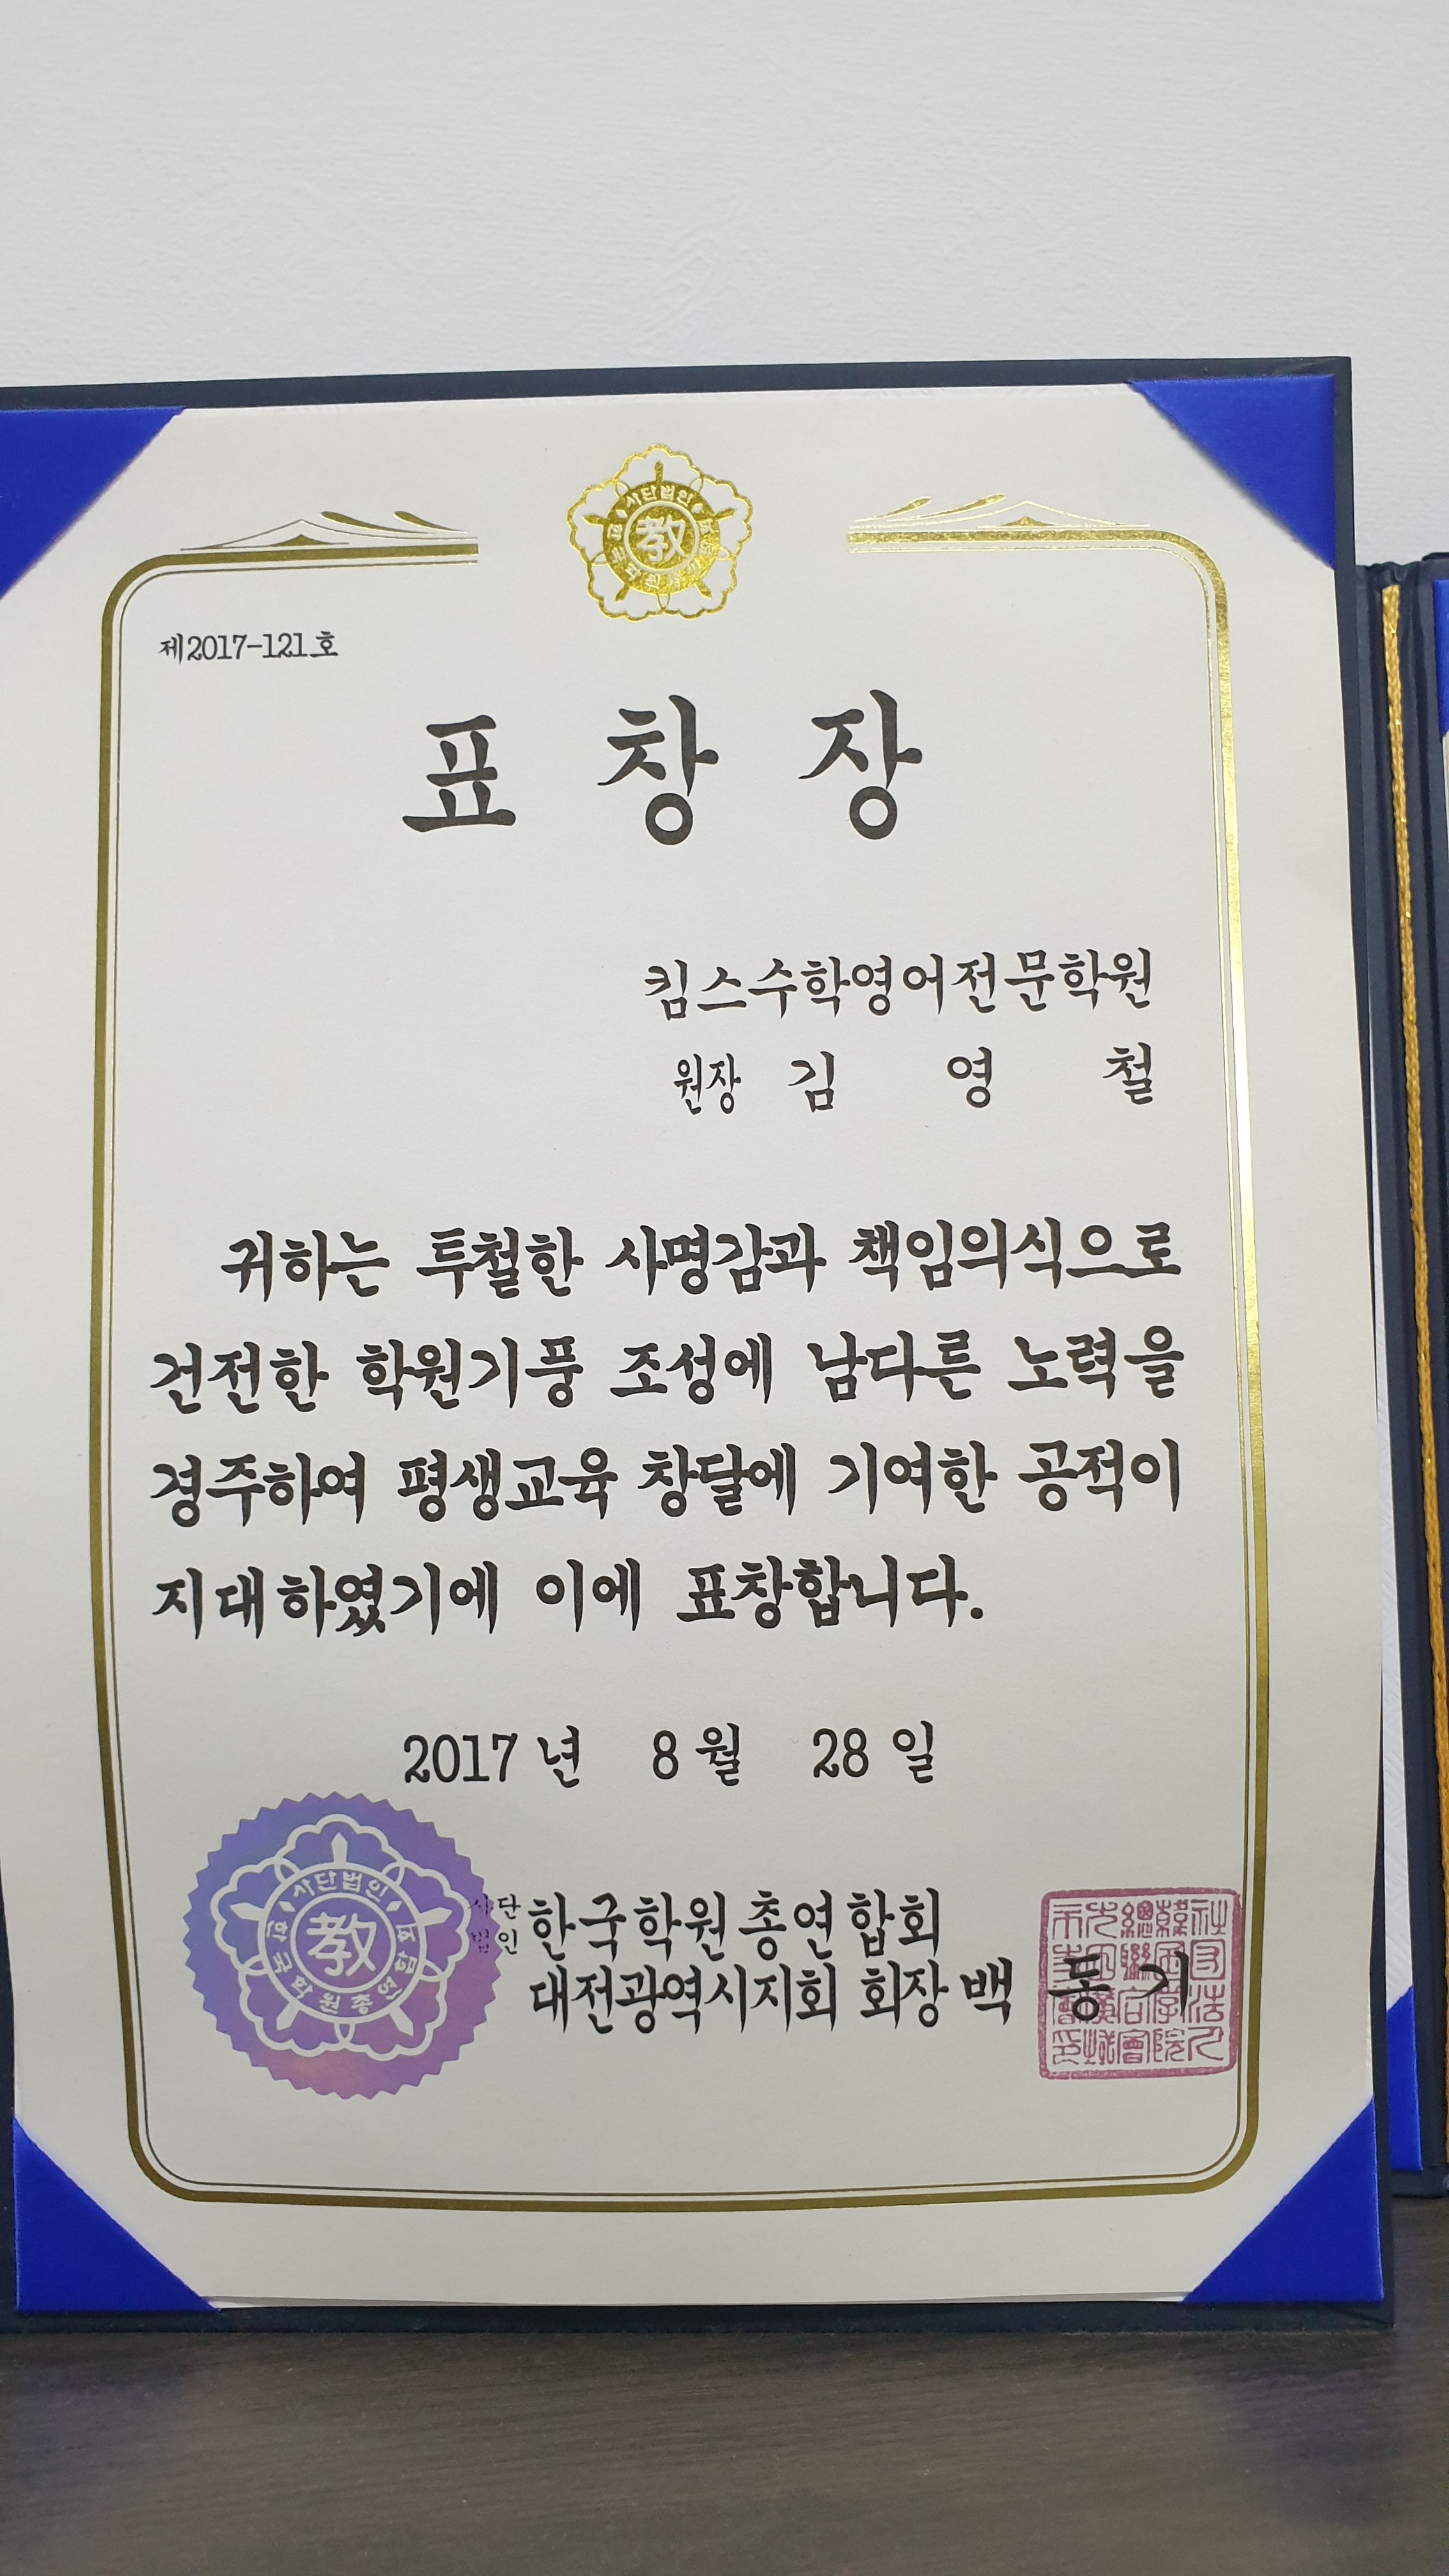 사단법인
教
제2017-121호
표 창 장
킴스수학영어전문학원
원장 김 영 철
귀하는 투철한 사명감과 책임의식으로
건전한 학원기풍 조성에 남다른 노력을
경주하여 평생교육 창달에 기여한 공적이
지대하였기에 이에 표창합니다.
2017년 8월 28일
사단법인
한국학원총연합회
教
사단
법인
한국학원총연합회
대전광역시지회 회장 백 동 기